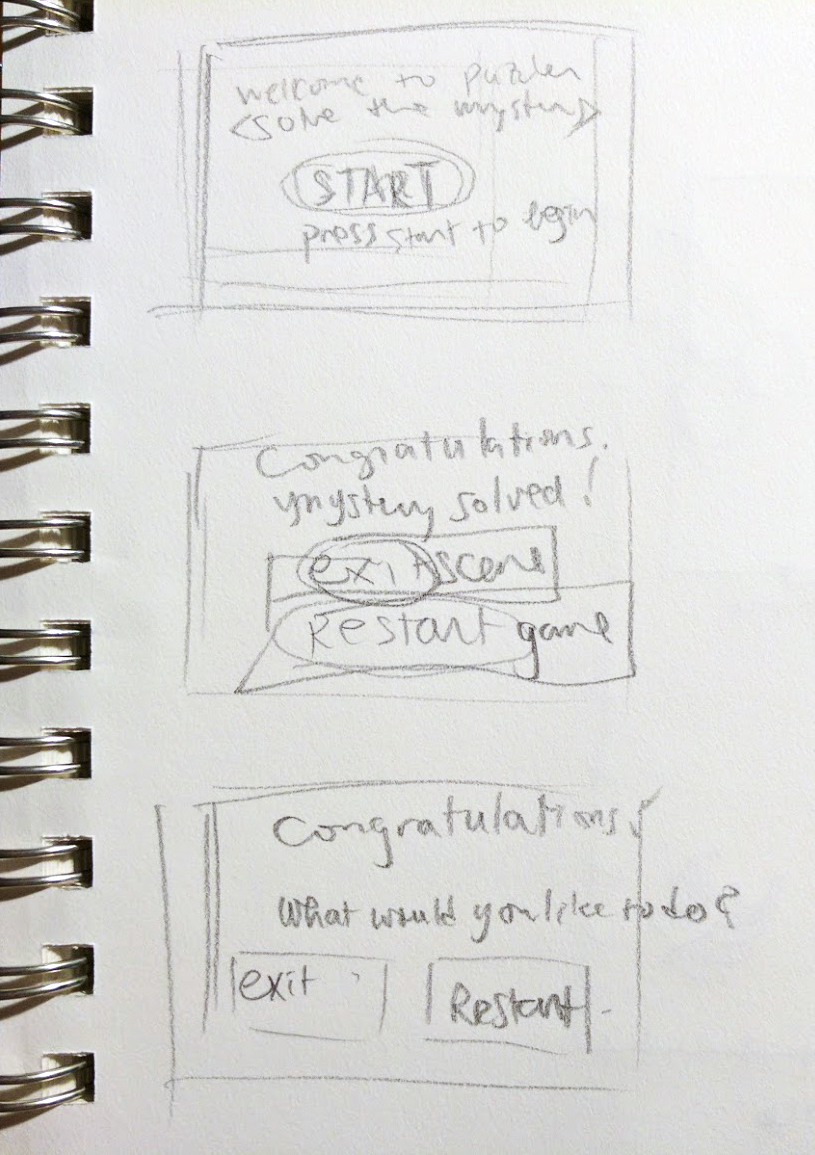 welcome to puzzler
<solve the mystery>
START
press start to begin
Congratulations.
mystery solved!
exit scene
Restart game
Congratulations!
What would you like to do?
exit
Restart